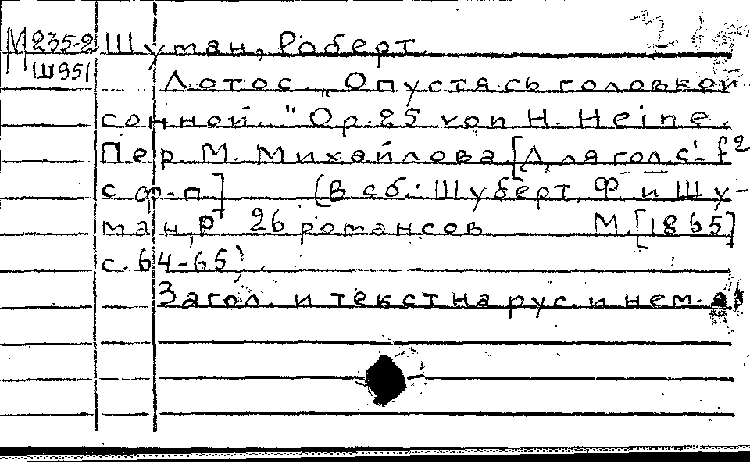 М235-2 Шуман, Роберт.
Ш951 Лотос. „Опустясь головкой
сонной.." Op.25 von H. Heine.
Пер. М. Михайлова [Для гол. c'-f²
с ф-п] (В сб.: Шуберт, Ф. и Шу-
ман, Р. 26 романсов М. [1865]
с. 64-65)
Загол. и текст на рус. и нем. яз